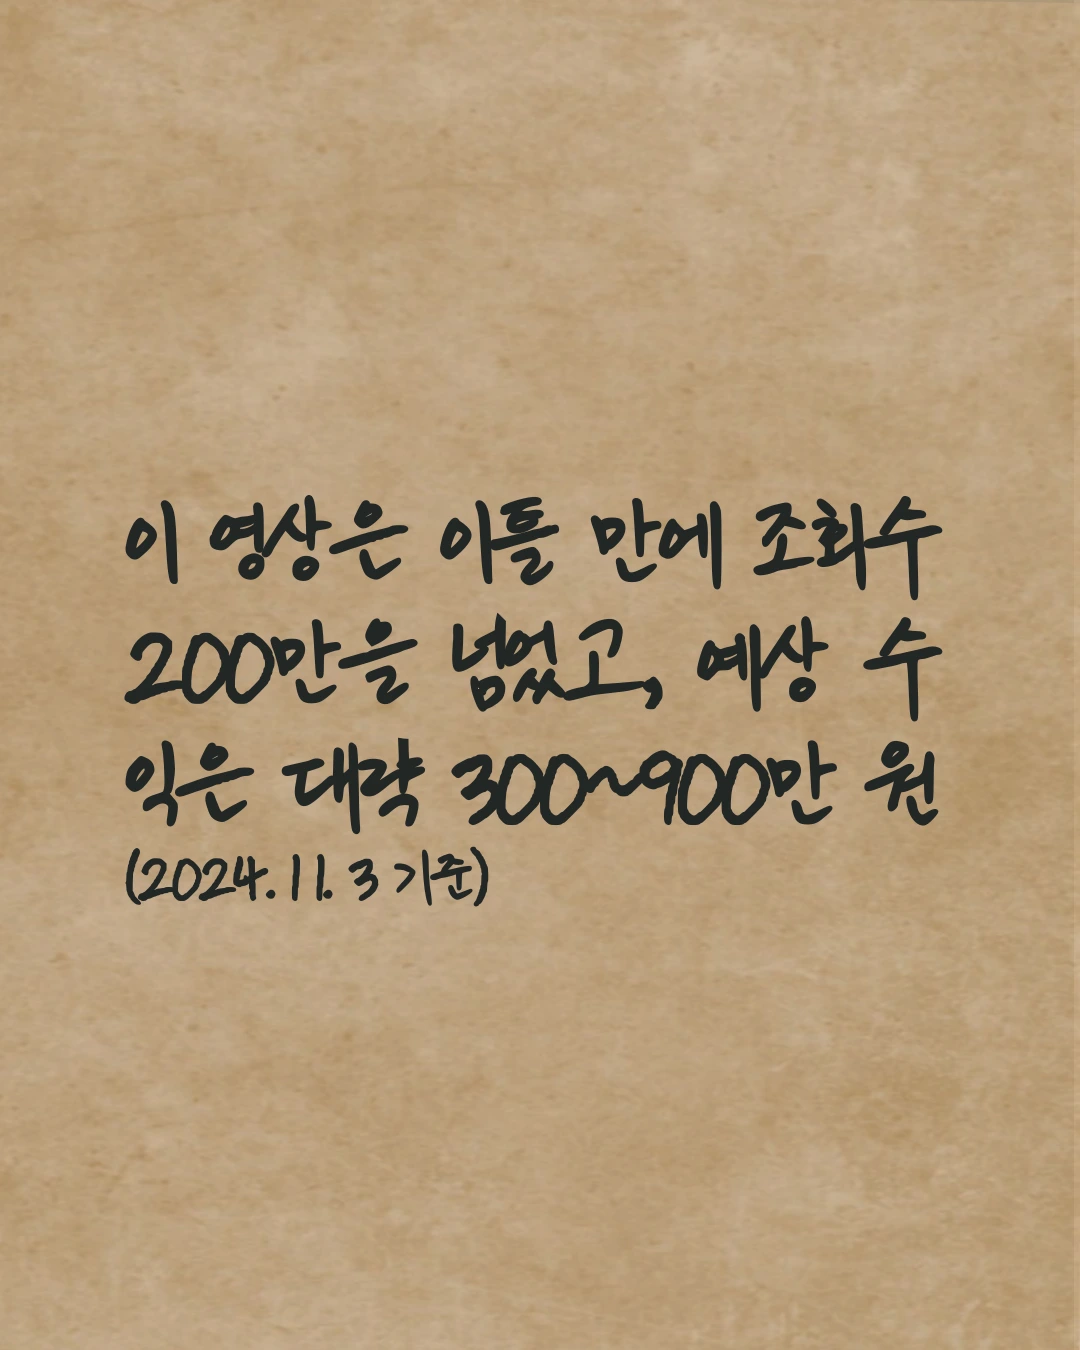 이 영상은 이틀 만에 조회수
200만을 넘었고, 예상 수
익은 대략 300~900만 원
(2024. 11. 3 기준)